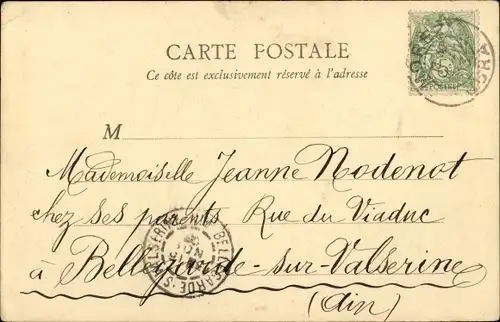 CARTE POSTALE
Ce côté est exclusivement réservé à l'adresse
M
Mademoiselle Jeanne Nodenot
chez ses parents Rue du Viaduc
à Bellegarde-sur-Valserine
(Ain)